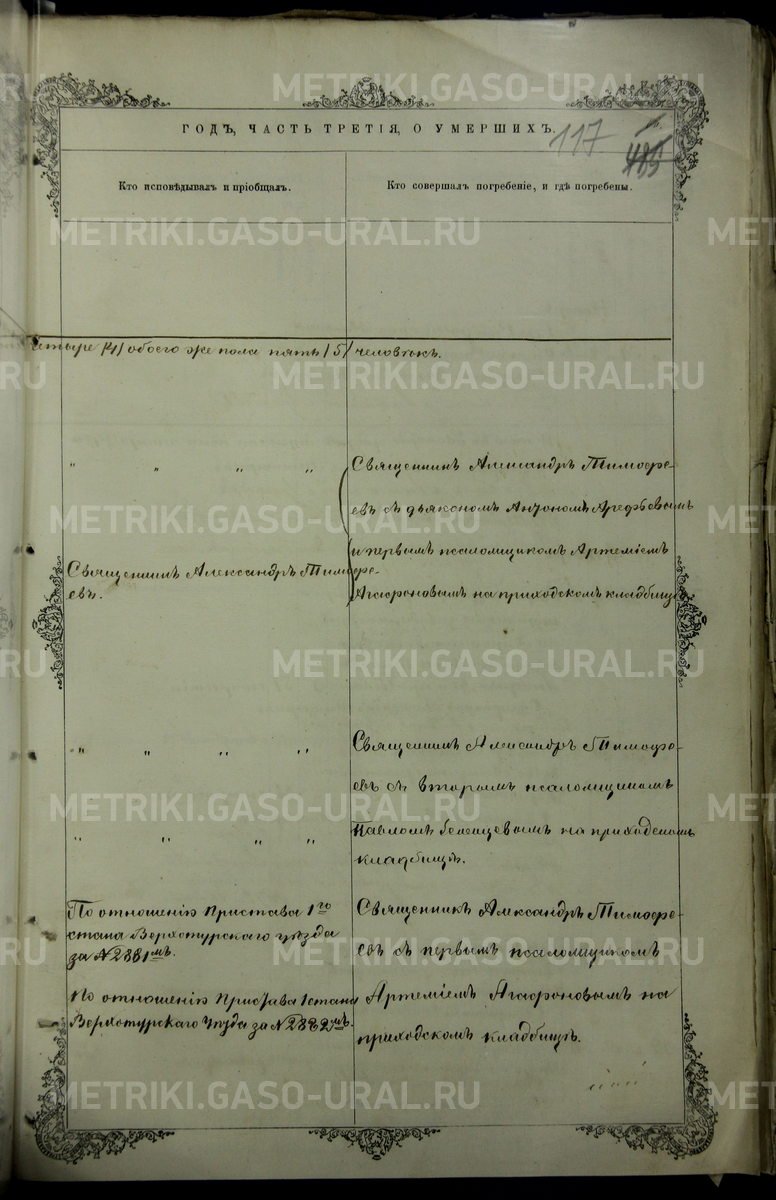 METRIKI.GASO-URAL.RU
ГОДЪ, ЧАСТЬ ТРЕТІЯ, О УМЕРШИХЪ.
117
Кто исповѣдывалъ и пріобщалъ.
Кто совершалъ погребеніе, и гдѣ погребены.
етыре /4/ обоего же пола пять /5/ человѣкъ.
" " " "
Священникъ Александръ Тимофе-
евъ съ дьякономъ Антономъ Арефьевымъ
и первымъ псаломщикомъ Артеміемъ
Агафоновымъ на приходскомъ кладбищѣ
Священникъ Александръ Тимофе-
евъ.
" " " "
Священникъ Александръ Тимофе-
евъ съ вторымъ псаломщикомъ
Павломъ на приходскомъ
кладбищѣ.
" " " "
По отношенію Пристава 1го
стана Верхотурскаго уѣзда
за №2881мъ.
Священникъ Александръ Тимофе-
евъ съ первымъ псаломщикомъ
Артеміемъ Агафоновымъ на
приходскомъ кладбищѣ.
По отношенію Пристава 1 стана
Верхотурскаго уѣзда за №2882мъ.